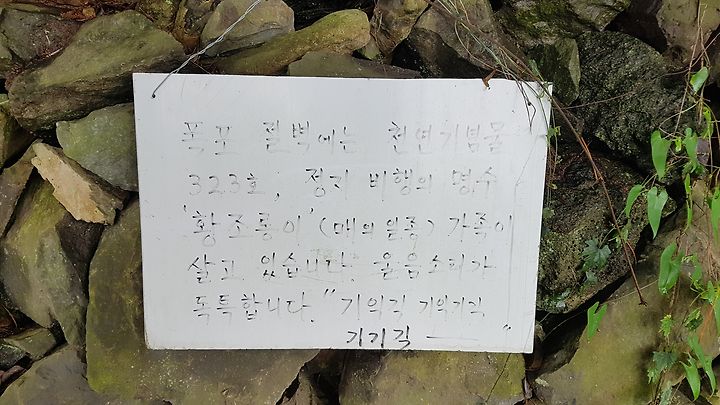 폭포 절벽에는 천연기념물
323호, 정지 비행의 명수
'황조롱이'(매의 일종) 가족이
살고 있습니다. 울음소리가
독특합니다. "기익각 기익기각
기기각 ─ "